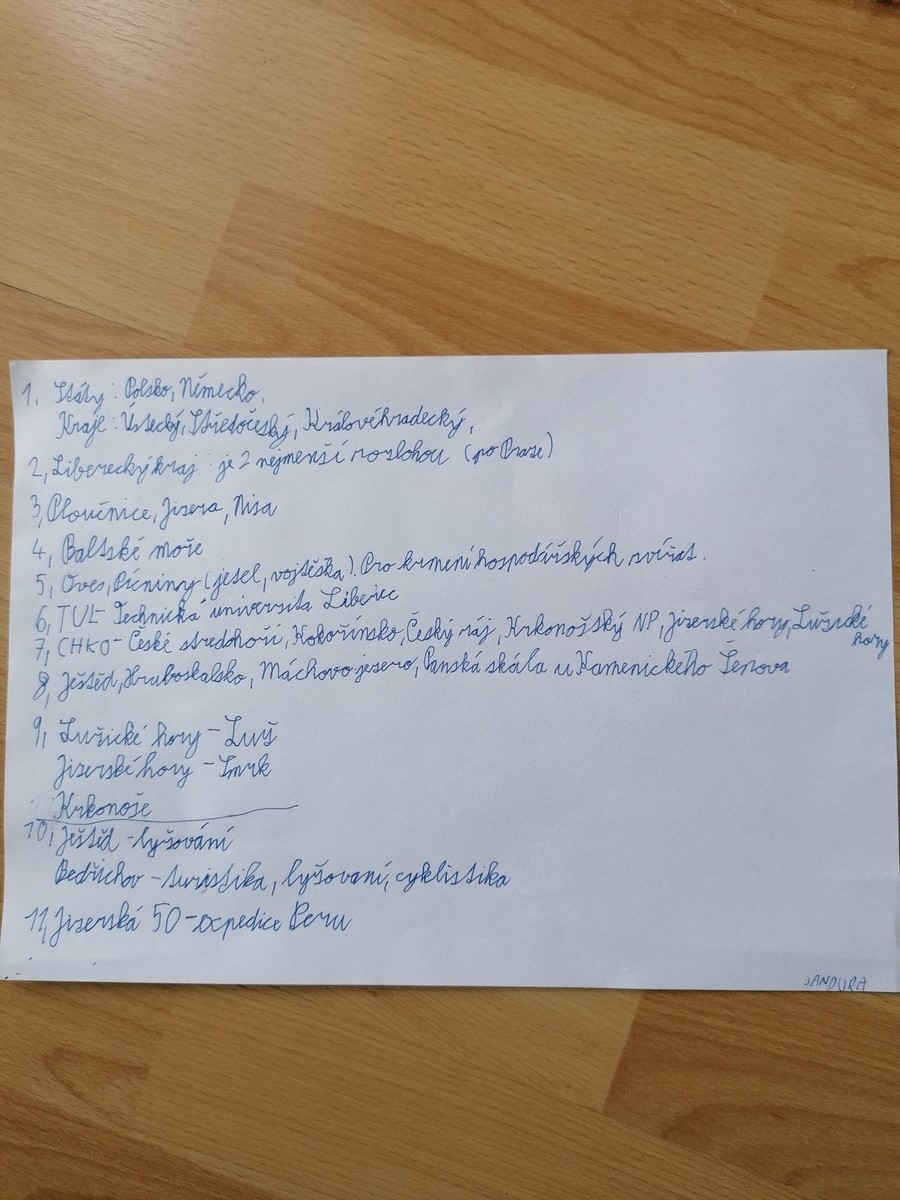 1, Státy : Polsko, Německo,
Kraje : Ústecký, Středočeský, Královéhradecký,
2, Liberecký kraj je 2 nejmenší rozlohou (po Praze)
3, Ploučnice, Jizera, Nisa
4, Baltské moře
5, Oves, Pícniny (jetel, vojtěška). Pro krmení hospodářských zvířat.
6, TUL- Technická universita Liberec
7, CHKO- České středohoří, Kokořínsko, Český ráj, Krkonošský NP, Jizerské hory, Lužické
hory
8, Ještěd, Hruboskalsko, Máchovo jezero, Panská skála u Kamenického Šenova
9, Lužické hory - Luž
Jizerské hory - Smrk
Krkonoše
10, Ještěd - lyžování
Bedřichov - turistika, lyžovaní, cyklistika
11, Jizerská 50 - expedice Peru
JANDURA